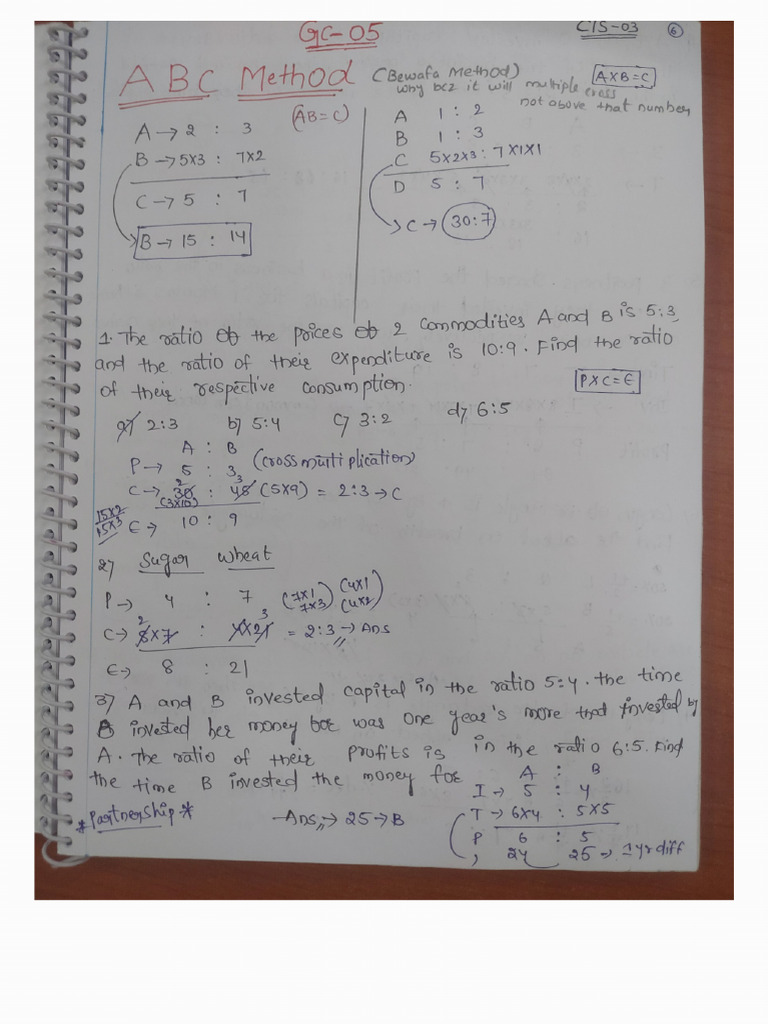 GC-05
CIS-03 6
ABC Method (Bewafa Method) A×B=C
why bcz it will multiple cross
not above that number
(AB=C)
A → 2 : 3
B → 5×3 : 7×2
C → 5 : 7
B → 15 : 14
A 1 : 2
B 1 : 3
C 5×2×3 : 7×1×1
D 5 : 7
C → 30:7
1. The ratio of the prices of 2 commodities A and B is 5:3
and the ratio of their expenditure is 10:9. Find the ratio
of their respective consumption. P×C=E
a) 2:3 b) 5:4 c) 3:2 d) 6:5
A : B
P → 5 : 3 (cross multiplication)
2 3
C → 30 : 45 (5×9) = 2:3 → C
(3×10)
15×2
15×3
E → 10 : 9
2) Sugar Wheat
P → 4 : 7 (7×1 7×3) (4×1 4×2)
2 3
C → 8×7 : 4×21 = 2:3 → Ans
E → 8 : 21
3) A and B invested capital in the ratio 5:4. the time
B invested her money for was one year's more that invested by
A. The ratio of their profits is in the ratio 6:5. Find
the time B invested the money for
A : B
I → 5 : 4
*Partnership* Ans → 25 → B
T → 6×4 : 5×5
P 6 : 5
24 25 → 1yr diff